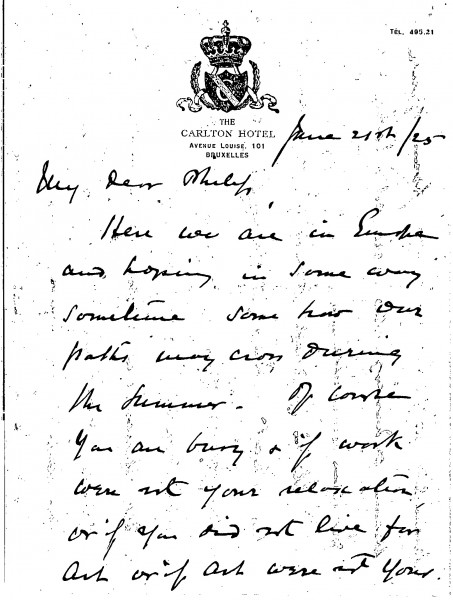 TÉL. 495.21
THE
CARLTON HOTEL
AVENUE LOUISE, 101
BRUXELLES
June 21st/25
My Dear Philip,
Here we are in Europe
and hoping in some way
sometime some how our
paths may cross during
the summer. Of course
you are busy & if work
were not your relaxation
or if you did not live for
Art or if Art were not your